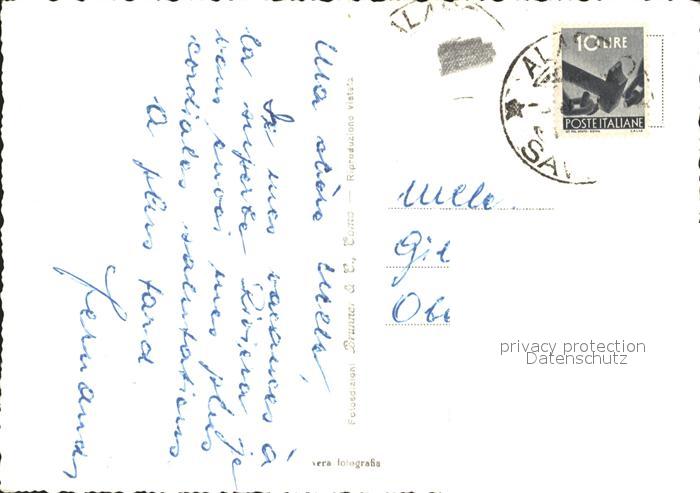 Ma chère Mella,
De mes vacances à
la superbe Riviera je
vous envoi mes plus
cordiales salutations
A plus tard
Fernando,
Fotoedizioni Brunner & C., Como — Riproduzione vietata
vera fotografia
ALA
10 LIRE
POSTE ITALIANE
ALA
SAV
Melle.
Gie
Obe
privacy protection
Datenschutz